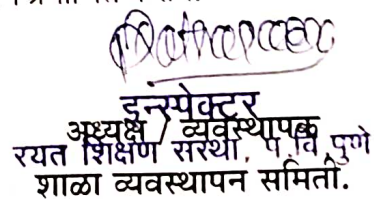 इन्स्पेक्टर
अध्यक्ष / व्यवस्थापक
रयत शिक्षण संस्था, प. वि. पुणे
शाळा व्यवस्थापन समिती.